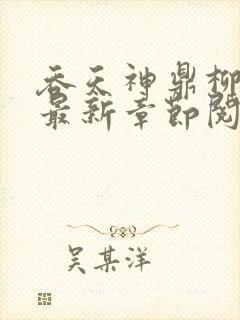 吞天神鼎柳
最新章节阅
吴某洋